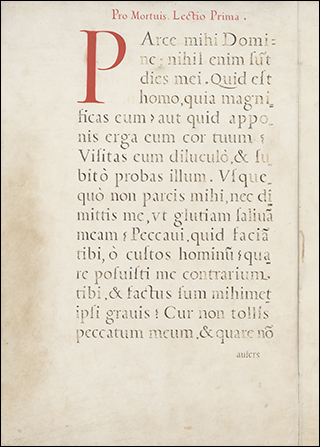 Pro Mortuis. Lectio Prima.
PArce mihi Domi-
ne: nihil enim sũt
dies mei. Quid est
homo, quia magni-
ficas eum? aut quid appo-
nis erga eum cor tuum?
Visitas eum diluculò, & su-
bitò probas illum. Vsque-
quò non parcis mihi, nec di
mittis me, vt glutiam saliuã
meam? Peccaui, quid faciã
tibi, ò custos hominũ? qua
re posuisti me contrarium
tibi, & factus sum mihimet
ipsi grauis? Cur non tollis
peccatum meum, & quare nõ
aufers